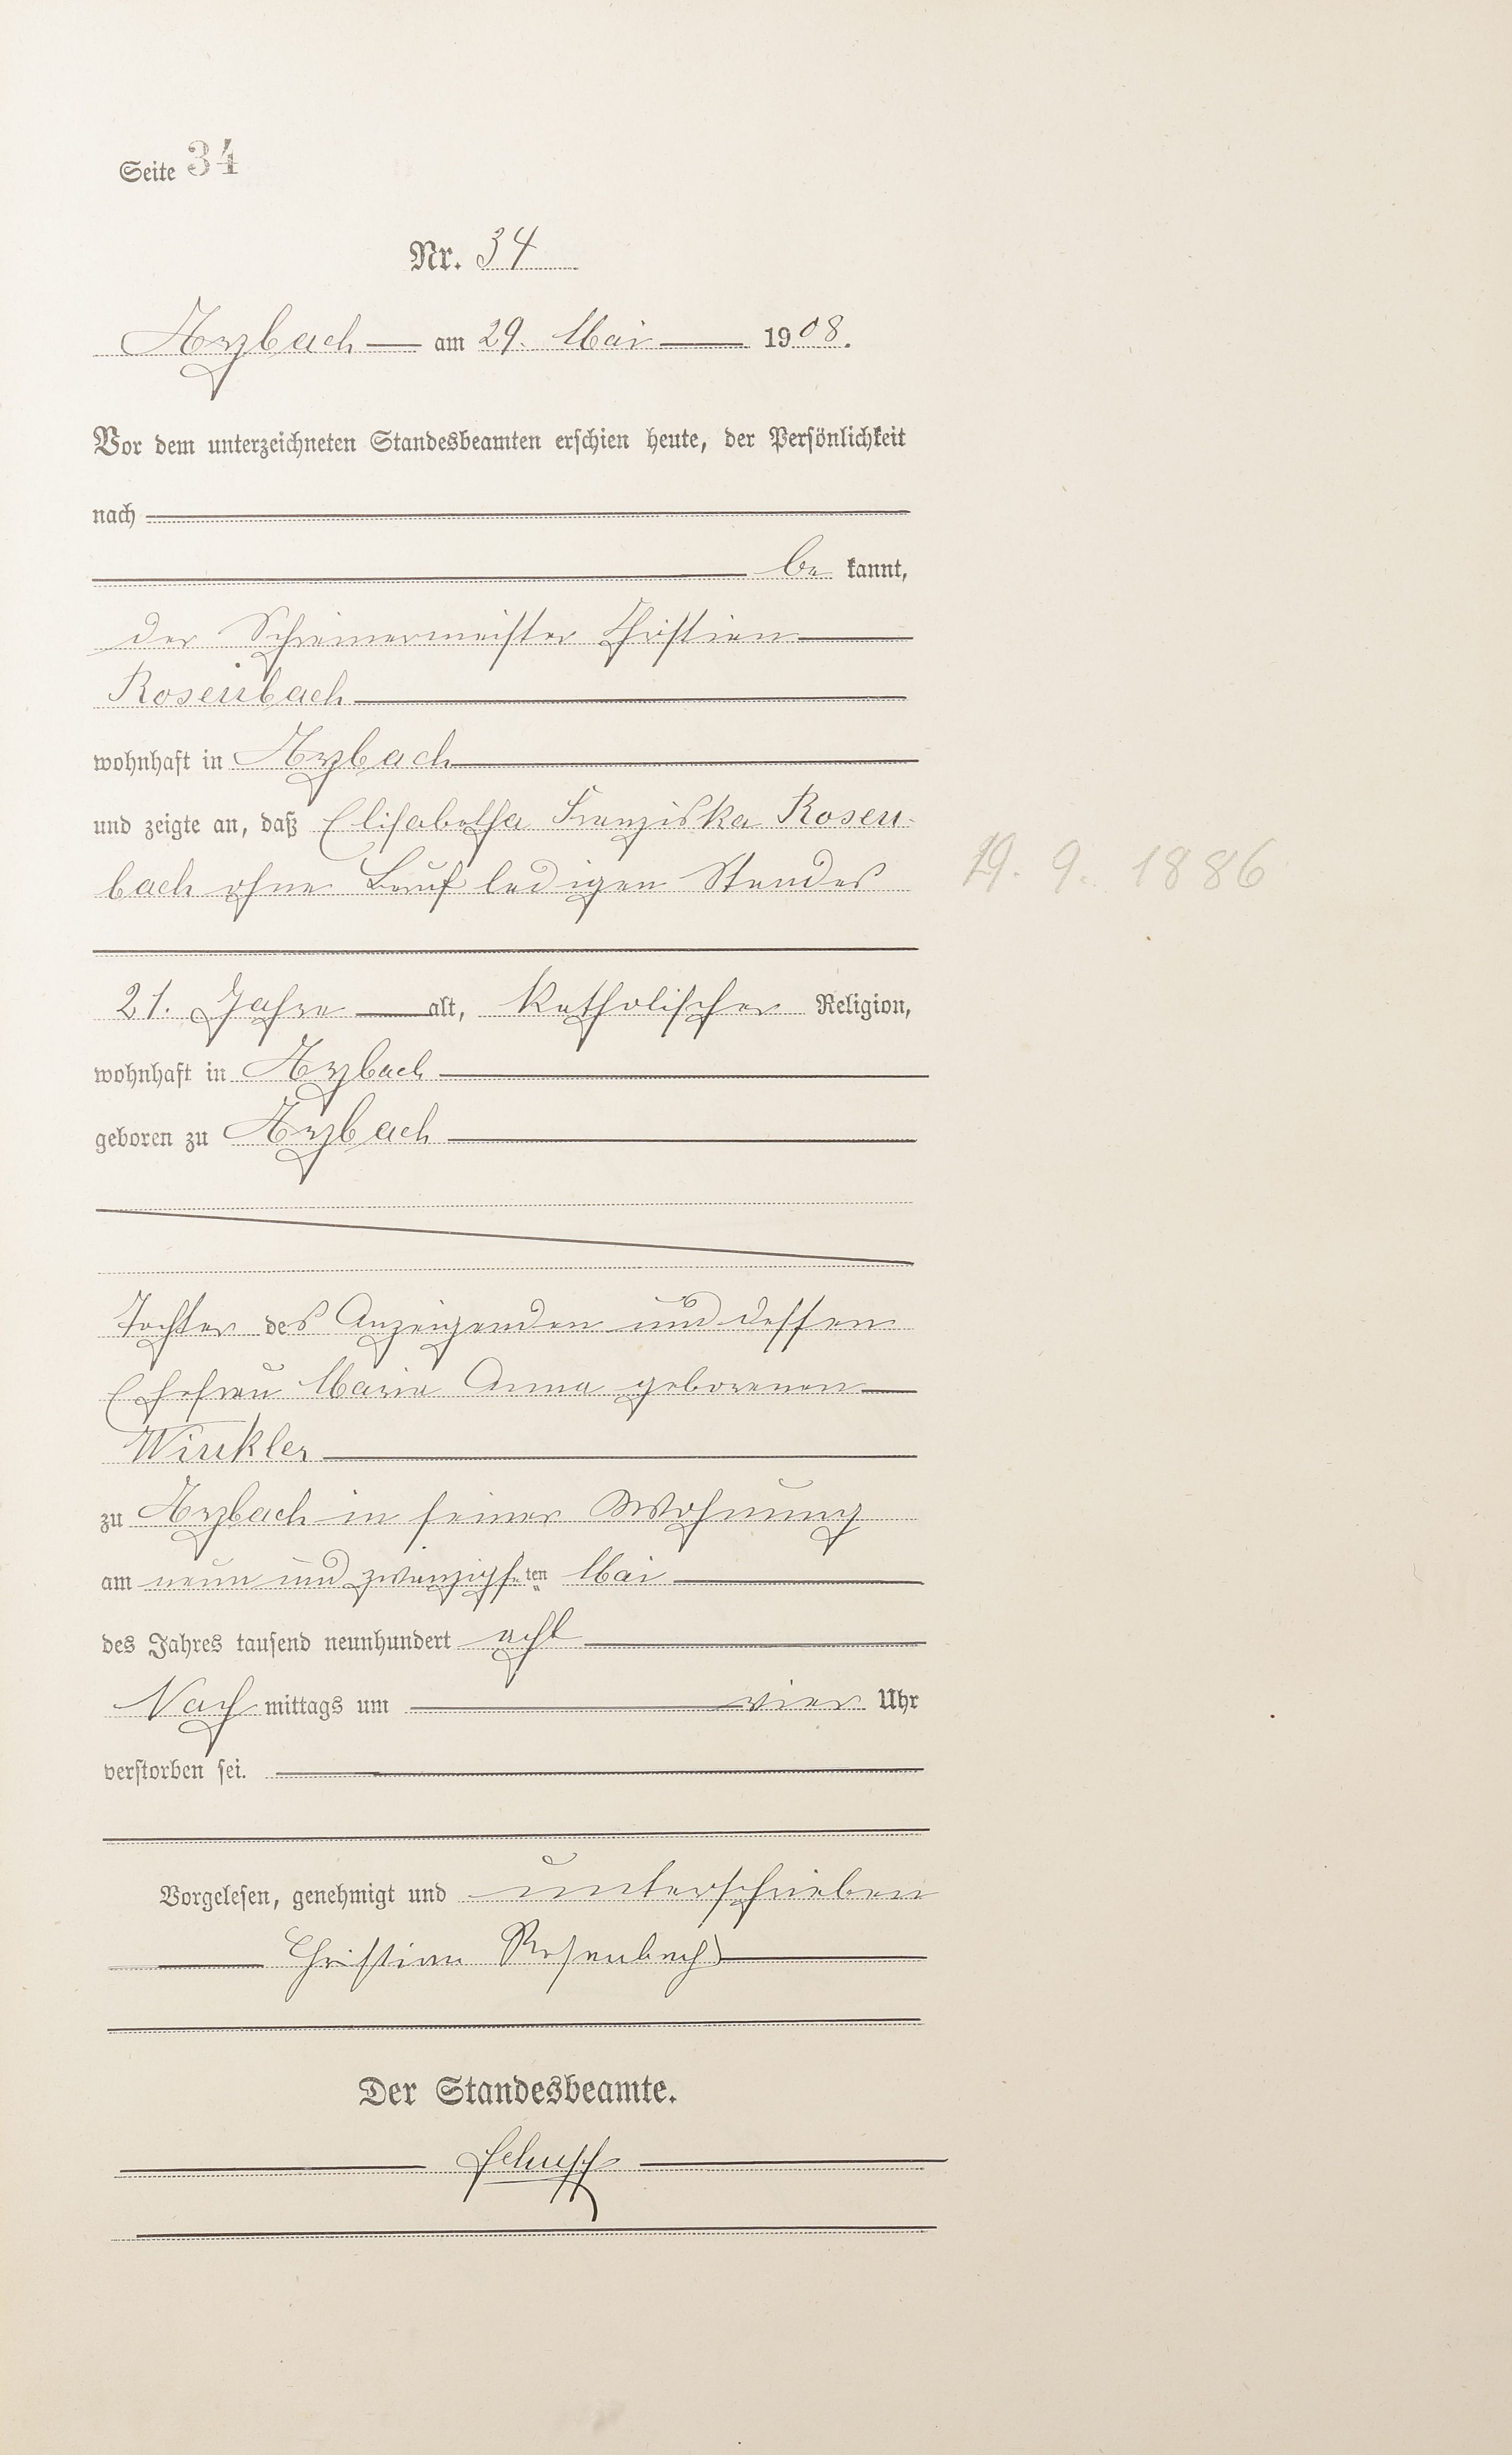 Seite 34
Nr. 34
Arzbach am 29. Mai 1908.
Vor dem unterzeichneten Standesbeamten erschien heute, der Persönlichkeit
nach
be kannt,
der Schreinermeister Christian
Rosenbach
wohnhaft in Arzbach
und zeigte an, daß Elisabetha Franziska Rosen-
bach ohne Beruf ledigen Standes
19. 9. 1886
21. Jahre alt, katholischer Religion,
wohnhaft in Arzbach
geboren zu Arzbach
Tochter des Anzeigenden und dessen
Ehefrau Maria Anna geborenen
Winkler
zu Arzbach in seiner Wohnung
am neun und zwanzigsten Mai
des Jahres tausend neunhundert acht
Nach mittags um vier Uhr
verstorben sei.
Vorgelesen, genehmigt und unterschrieben
Christian Rosenbach
Der Standesbeamte.